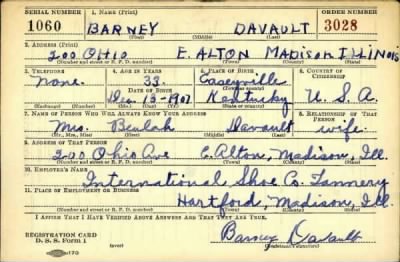 SERIAL NUMBER 1. NAME (Print) ORDER NUMBER
1060 BARNEY DAVAULT 3028
(First) (Middle) (Last)
2. ADDRESS (Print)
200 Ohio E. ALTON MADISON ILLINOIS
(Number and street or R. F. D. number) (Town) (County) (State)
3. TELEPHONE 4. AGE IN YEARS 5. PLACE OF BIRTH 6. COUNTRY OF CITIZENSHIP
None. 33 Caseyville
DATE OF BIRTH (Town or county)
Dec. 13-1907 Kentucky U.S.A.
(Exchange) (Number) (Mo.) (Day) (Yr.) (State or country)
7. NAME OF PERSON WHO WILL ALWAYS KNOW YOUR ADDRESS 8. RELATIONSHIP OF THAT PERSON
Mrs. Beulah Davault wife.
(Mr., Mrs., Miss) (First) (Middle) (Last)
9. ADDRESS OF THAT PERSON
200 Ohio Ave E. Alton, Madison, Ill.
(Number and street or R. F. D. number) (Town) (County) (State)
10. EMPLOYER'S NAME
International Shoe Co. Tannery
11. PLACE OF EMPLOYMENT OR BUSINESS
Hartford, Madison, Ill.
(Number and street or R. F. D. number) (Town) (County) (State)
I AFFIRM THAT I HAVE VERIFIED ABOVE ANSWERS AND THAT THEY ARE TRUE.
REGISTRATION CARD
D. S. S. Form 1 (over) Barney Davault
(Registrant's signature)